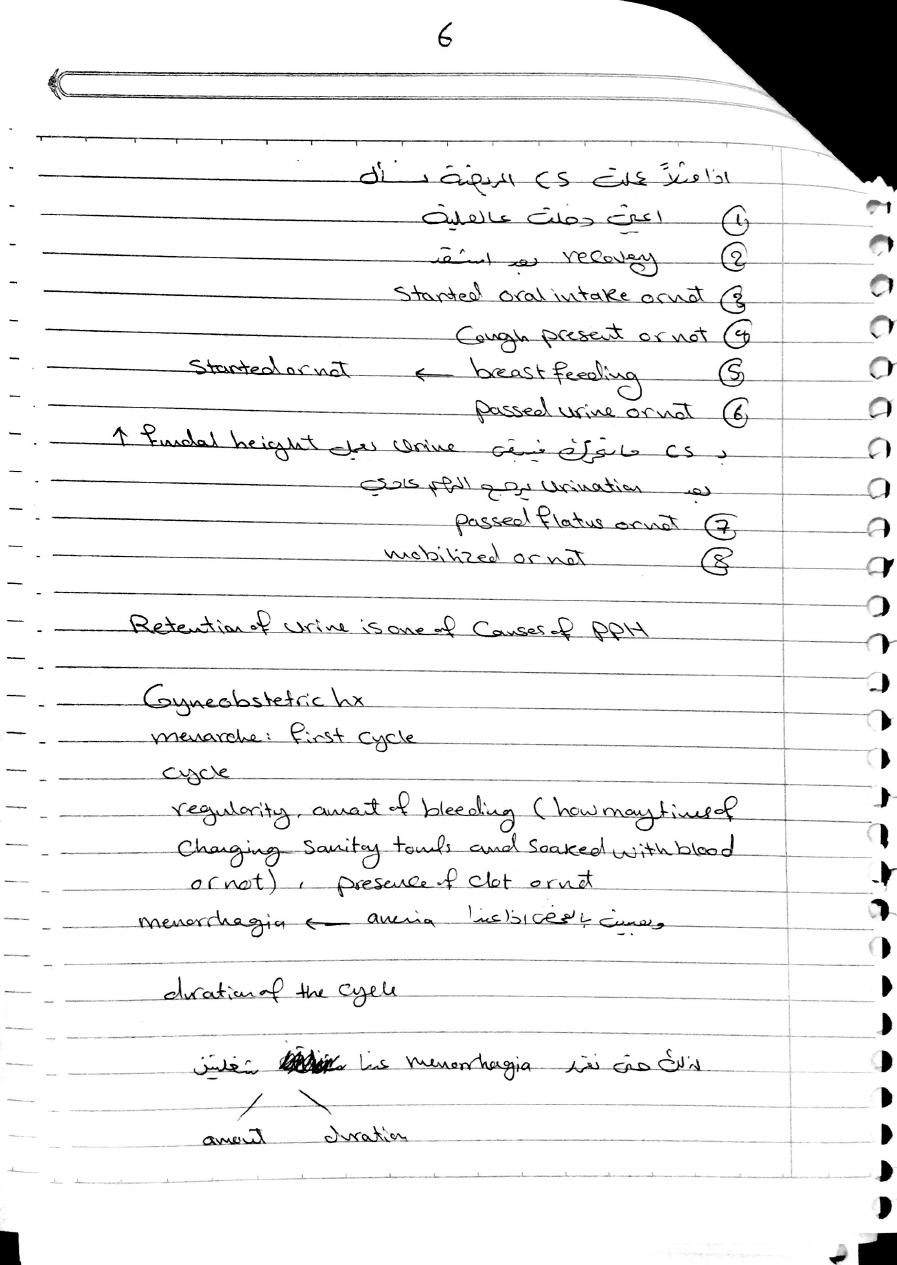 6
اذا مثلاً عملت CS المريضة نسأل
① دخلت عالعملية
② recovey بعد
③ Started oral intake or not
④ Cough present or not
⑤ breast feeding ← Started or not
⑥ passed urine or not
CS urine تعمل fundal height ↑
بعد urination يرجع الرحم عادي
⑦ passed flatus or not
⑧ mobilized or not
Retention of urine is one of Causes of PPH
Gyneobstetric hx
menarche: first cycle
cycle
regulority, amout of bleeding (how may times of
Changing Sanitay towls and Soaked with blood
or not), presence of clot or not
اذا عندا anemia ← menorrhagia
duration of the cycle
لذلك حتى نقول menorrhagia عندا شغلتين
amout duration